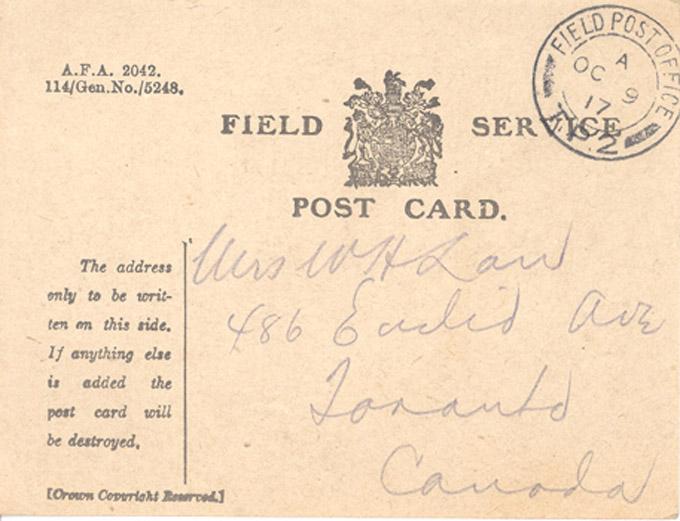 A.F.A. 2042.
114/Gen.No./5248.
FIELD POST OFFICE
A
OC 9
17
FIELD SERVICE
POST CARD.
The address
only to be writ-
ten on this side.
If anything else
is added the
post card will
be destroyed.
[Crown Copyright Reserved.]
Mrs W H Law
486 Euclid Ave
Toronto
Canada